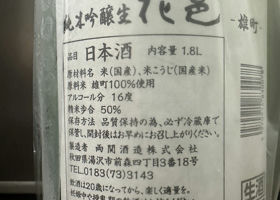 純米吟醸生 花邑 -雄町-
品目 日本酒 内容量 1.8L
原材料名 米(国産)、米こうじ(国産米)
原料米 雄町100%使用
アルコール分 16度
精米歩合 50%
保存方法 品質保持の為、必ず冷蔵庫で
保管し、開封後はお早めにお召し上がりください。
製造者 両関酒造株式会社
秋田県湯沢市前森四丁目3番18号
TEL.0183(73)3143
飲酒は20歳になってから。楽しく適量を。
生酒